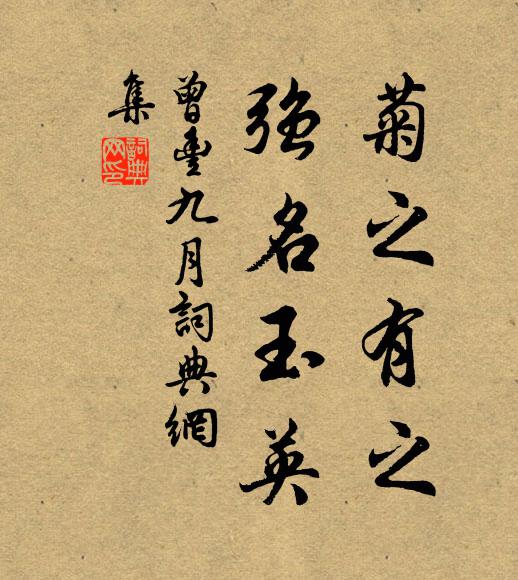 菊之有之
強名玉英
曾豐九月詞典網
集
詞典網印